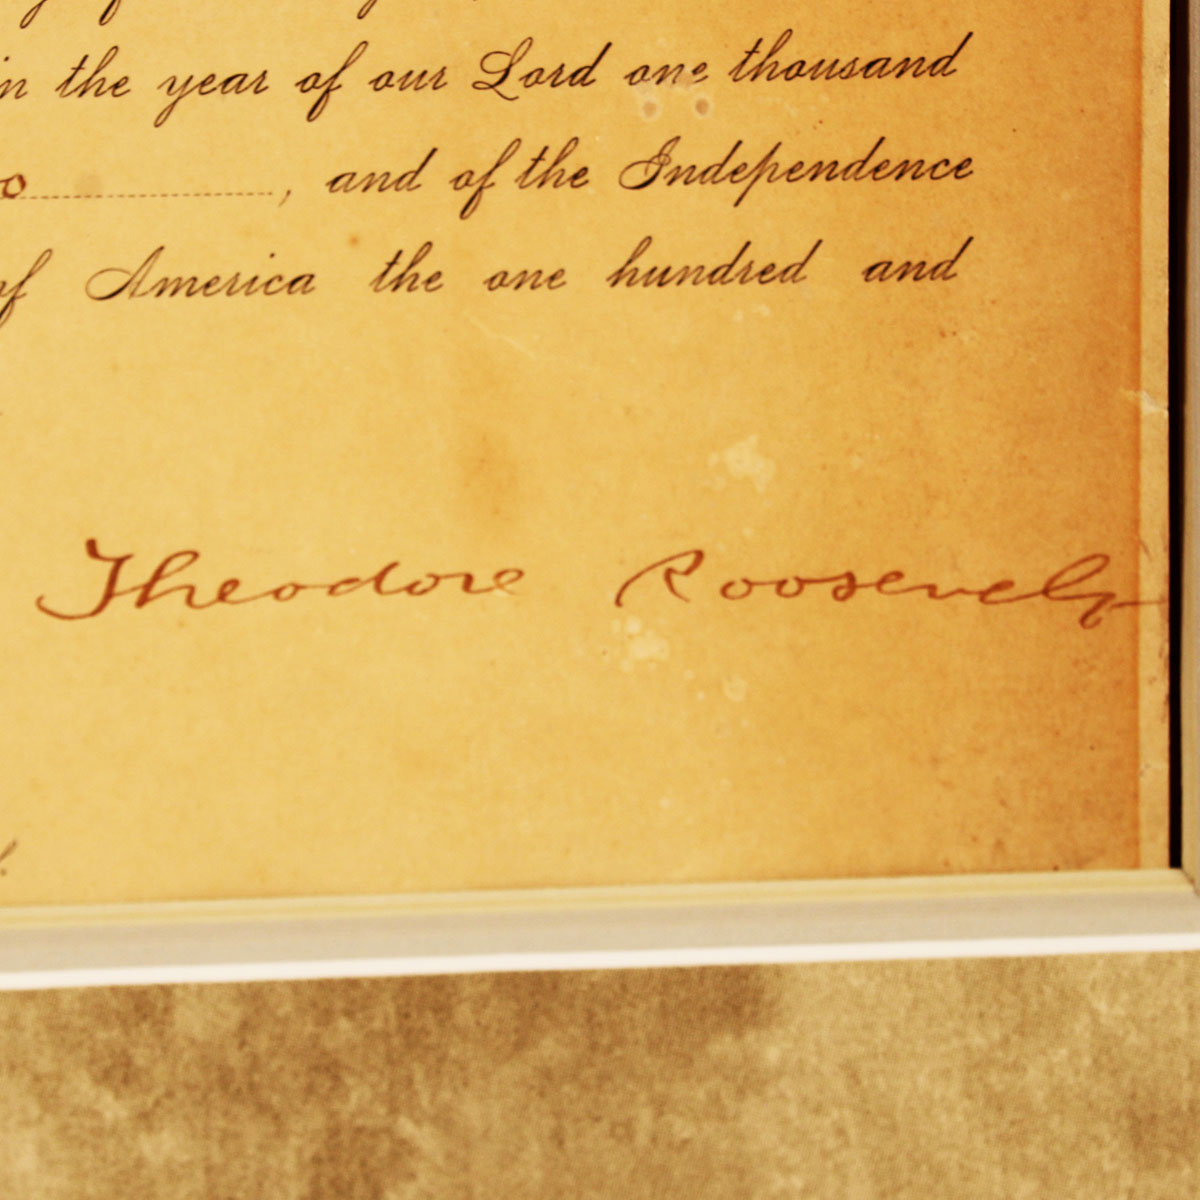 in the year of our Lord one thousand
o, and of the Independence
of America the one hundred and
Theodore Roosevelt